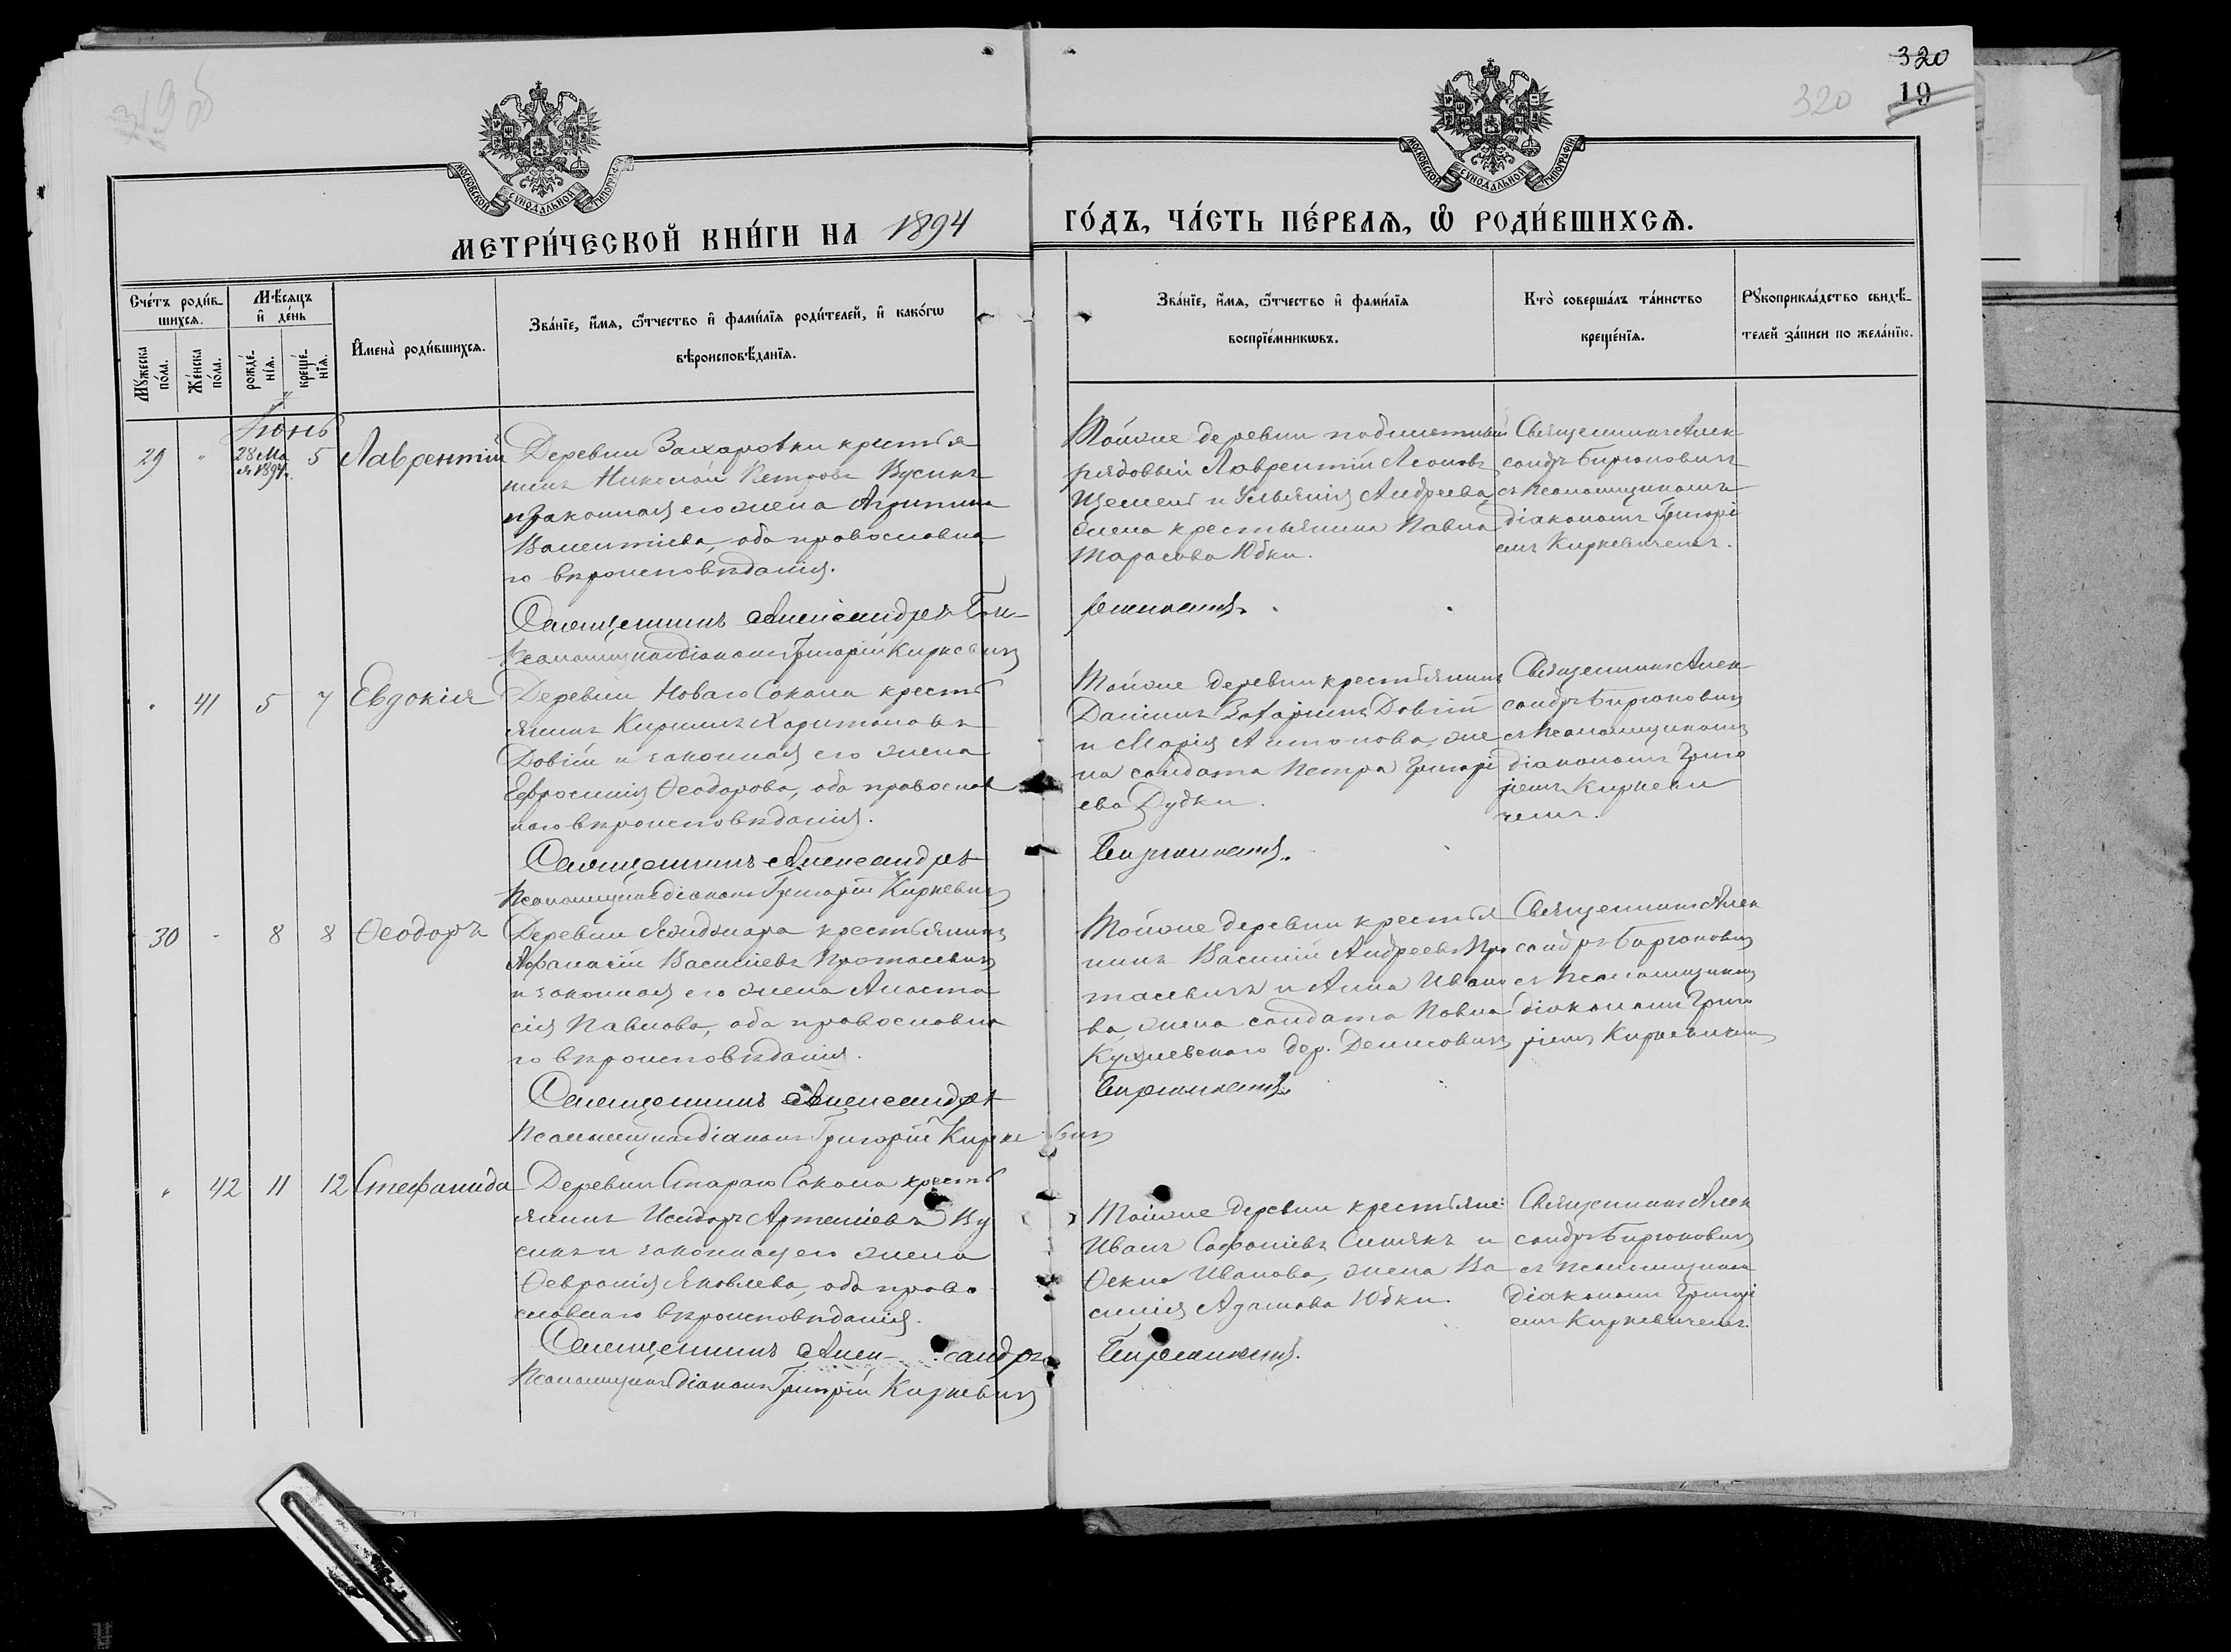 319 об
320
320
19
МОСКОВСКОЙ СУНОДАЛЬНОЙ ТИПОГРАФІИ
МОСКОВСКОЙ СУНОДАЛЬНОЙ ТИПОГРАФІИ
МЕТРИ́ЧЕСКОЙ КНИ́ГИ НА 1894
ГО́ДЪ, ЧА́СТЬ ПЕ́РВАѦ, Ѡ҆ РОДИ́ВШИХСѦ.
Сче́тъ роди́в-
шихсѧ.
Мꙋ́жеска по́ла.
Же́нска по́ла.
Мѣ́сѧцъ
и҆ де́нь
рожде́-
нїѧ.
креще́-
нїѧ.
И҆мена̀ роди́вшихсѧ.
Зва́нїе, и҆́мѧ, ѻ҆́тчество и҆ фами́лїѧ роди́телей, и҆ како́гѡ
вѣроисповѣ́данїѧ.
Зва́нїе, и҆́мѧ, ѻ҆́тчество и҆ фами́лїѧ
воспрїе́мникѡвъ.
Кто̀ соверша́лъ та́инство
креще́нїѧ.
Рꙋкоприкла́дство свидѣ́-
телей за́писи по жела́нїю.
Іюнь
29 " 28 Ма
я 1894г. 5 Лаврентій
Деревни Захаровки крестья
нинъ Николай Петровъ Вусикъ
и законная его жена Агрипина
Валентіева, оба православна
го вѣроисповѣданія.
Священникъ Александръ Би-
Псаломщикъ діаконъ Григорій Киркевичъ
Тойже деревни
рядовый Лаврентій Леоновъ
и Ульянія Андреева,
жена крестьянина Павла
Тарасова Юбки.
рюковичъ.
Священникъ Алек
сандръ Бирюковичъ
съ псаломщикомъ
діакономъ Григорі
емъ Киркевичемъ.
" 41 5 7 Евдокія
Деревни Новаго Сокола кресть
янинъ Кириллъ Харитоновъ
Довгій и законная его жена
Евфросинія Ѳеодорова, оба православ
наго вѣроисповѣданія.
Священникъ Александръ
Псаломщикъ діаконъ Григорій Киркевичъ
Тойже деревни крестьянинъ
Даніилъ Захаріинъ Довгій
и Марія Антонова, же
на солдата Петра Григорі
ева Дудки.
Бирюковичъ.
Священникъ Алек
сандръ Бирюковичъ
съ псаломщикомъ
діакономъ Григо
ріемъ Киркеви
чемъ.
30 " 8 8 Ѳеодоръ
Деревни крестьянинъ
Аѳанасій Василіевъ Протасевичъ
и законная его жена Анаста
сія Павлова, оба православна
го вѣроисповѣданія.
Священникъ Александръ
Псаломщикъ діаконъ Григорій Киркевичъ
Тойже деревни крестья
нинъ Василій Андреевъ Про
тасевичъ и Анна Ивано
ва, жена солдата Павла
дер. Денисовичъ
Бирюковичъ.
Священникъ Алек
сандръ Бирюковичъ
съ псаломщикомъ
діакономъ Григо
ріемъ Киркевичемъ
" 42 11 12 Стефанида
Деревни Стараго Сокола кресть
янинъ Исидоръ Артеміевъ Ву
сикъ и законная его жена
Ѳевронія Яковлева, оба право
славнаго вѣроисповѣданія.
Священникъ Александръ
Псаломщикъ діаконъ Григорій Киркевичъ
Тойже деревни крестьяне:
Иванъ Софоніевъ и
Ѳекла Иванова, жена Ва
силія Адамова Юбки.
Бирюковичъ.
Священникъ Алек
сандръ Бирюковичъ
съ псаломщикомъ
діакономъ Григорі
емъ Киркевичемъ.